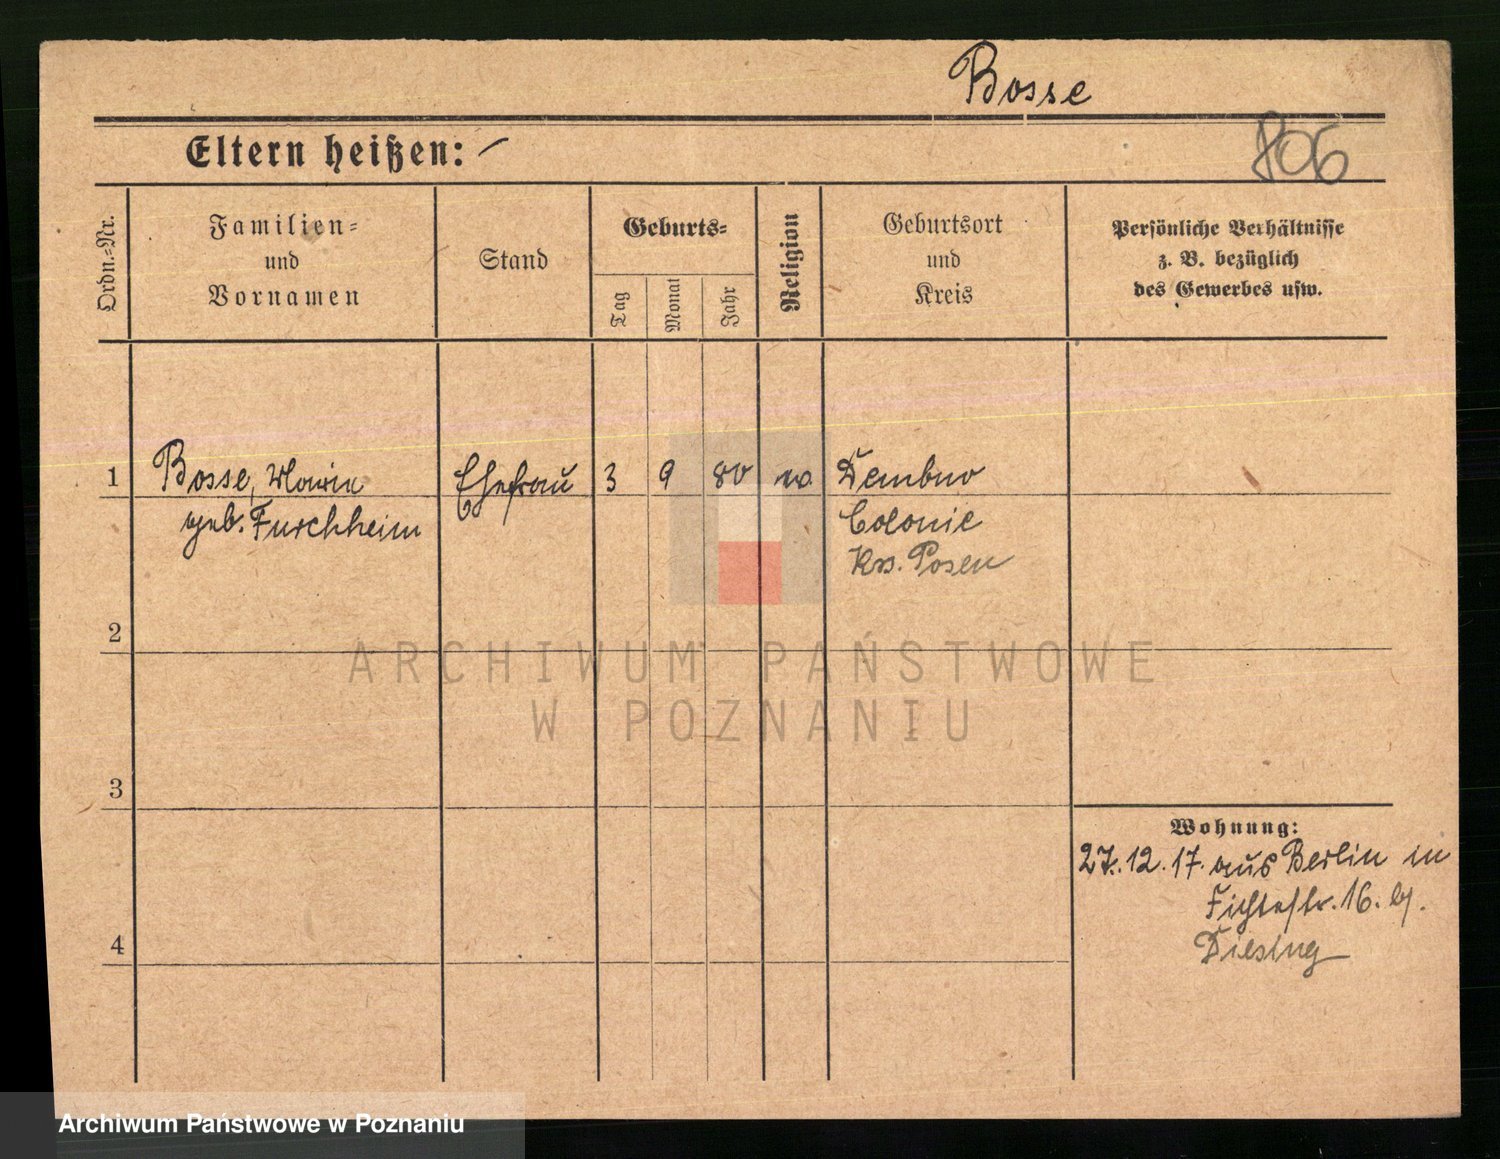 Bosse
Eltern heißen: –
806
Ordn.=Nr.
Familien=
und
Vornamen
Stand
Geburts=
Tag
Monat
Jahr
Religion
Geburtsort
und
Kreis
Persönliche Verhältnisse
z. B. bezüglich
des Gewerbes usw.
1
Bosse, Maria
geb. Furchheim
Ehefrau
3
9
80
Dembno
Colonie
Krs. Posen
2
3
4
ARCHIWUM PAŃSTWOWE
W POZNANIU
Wohnung:
27.12.17. aus Berlin in
Fichtestr. 16. bj.
Diesing
Archiwum Państwowe w Poznaniu